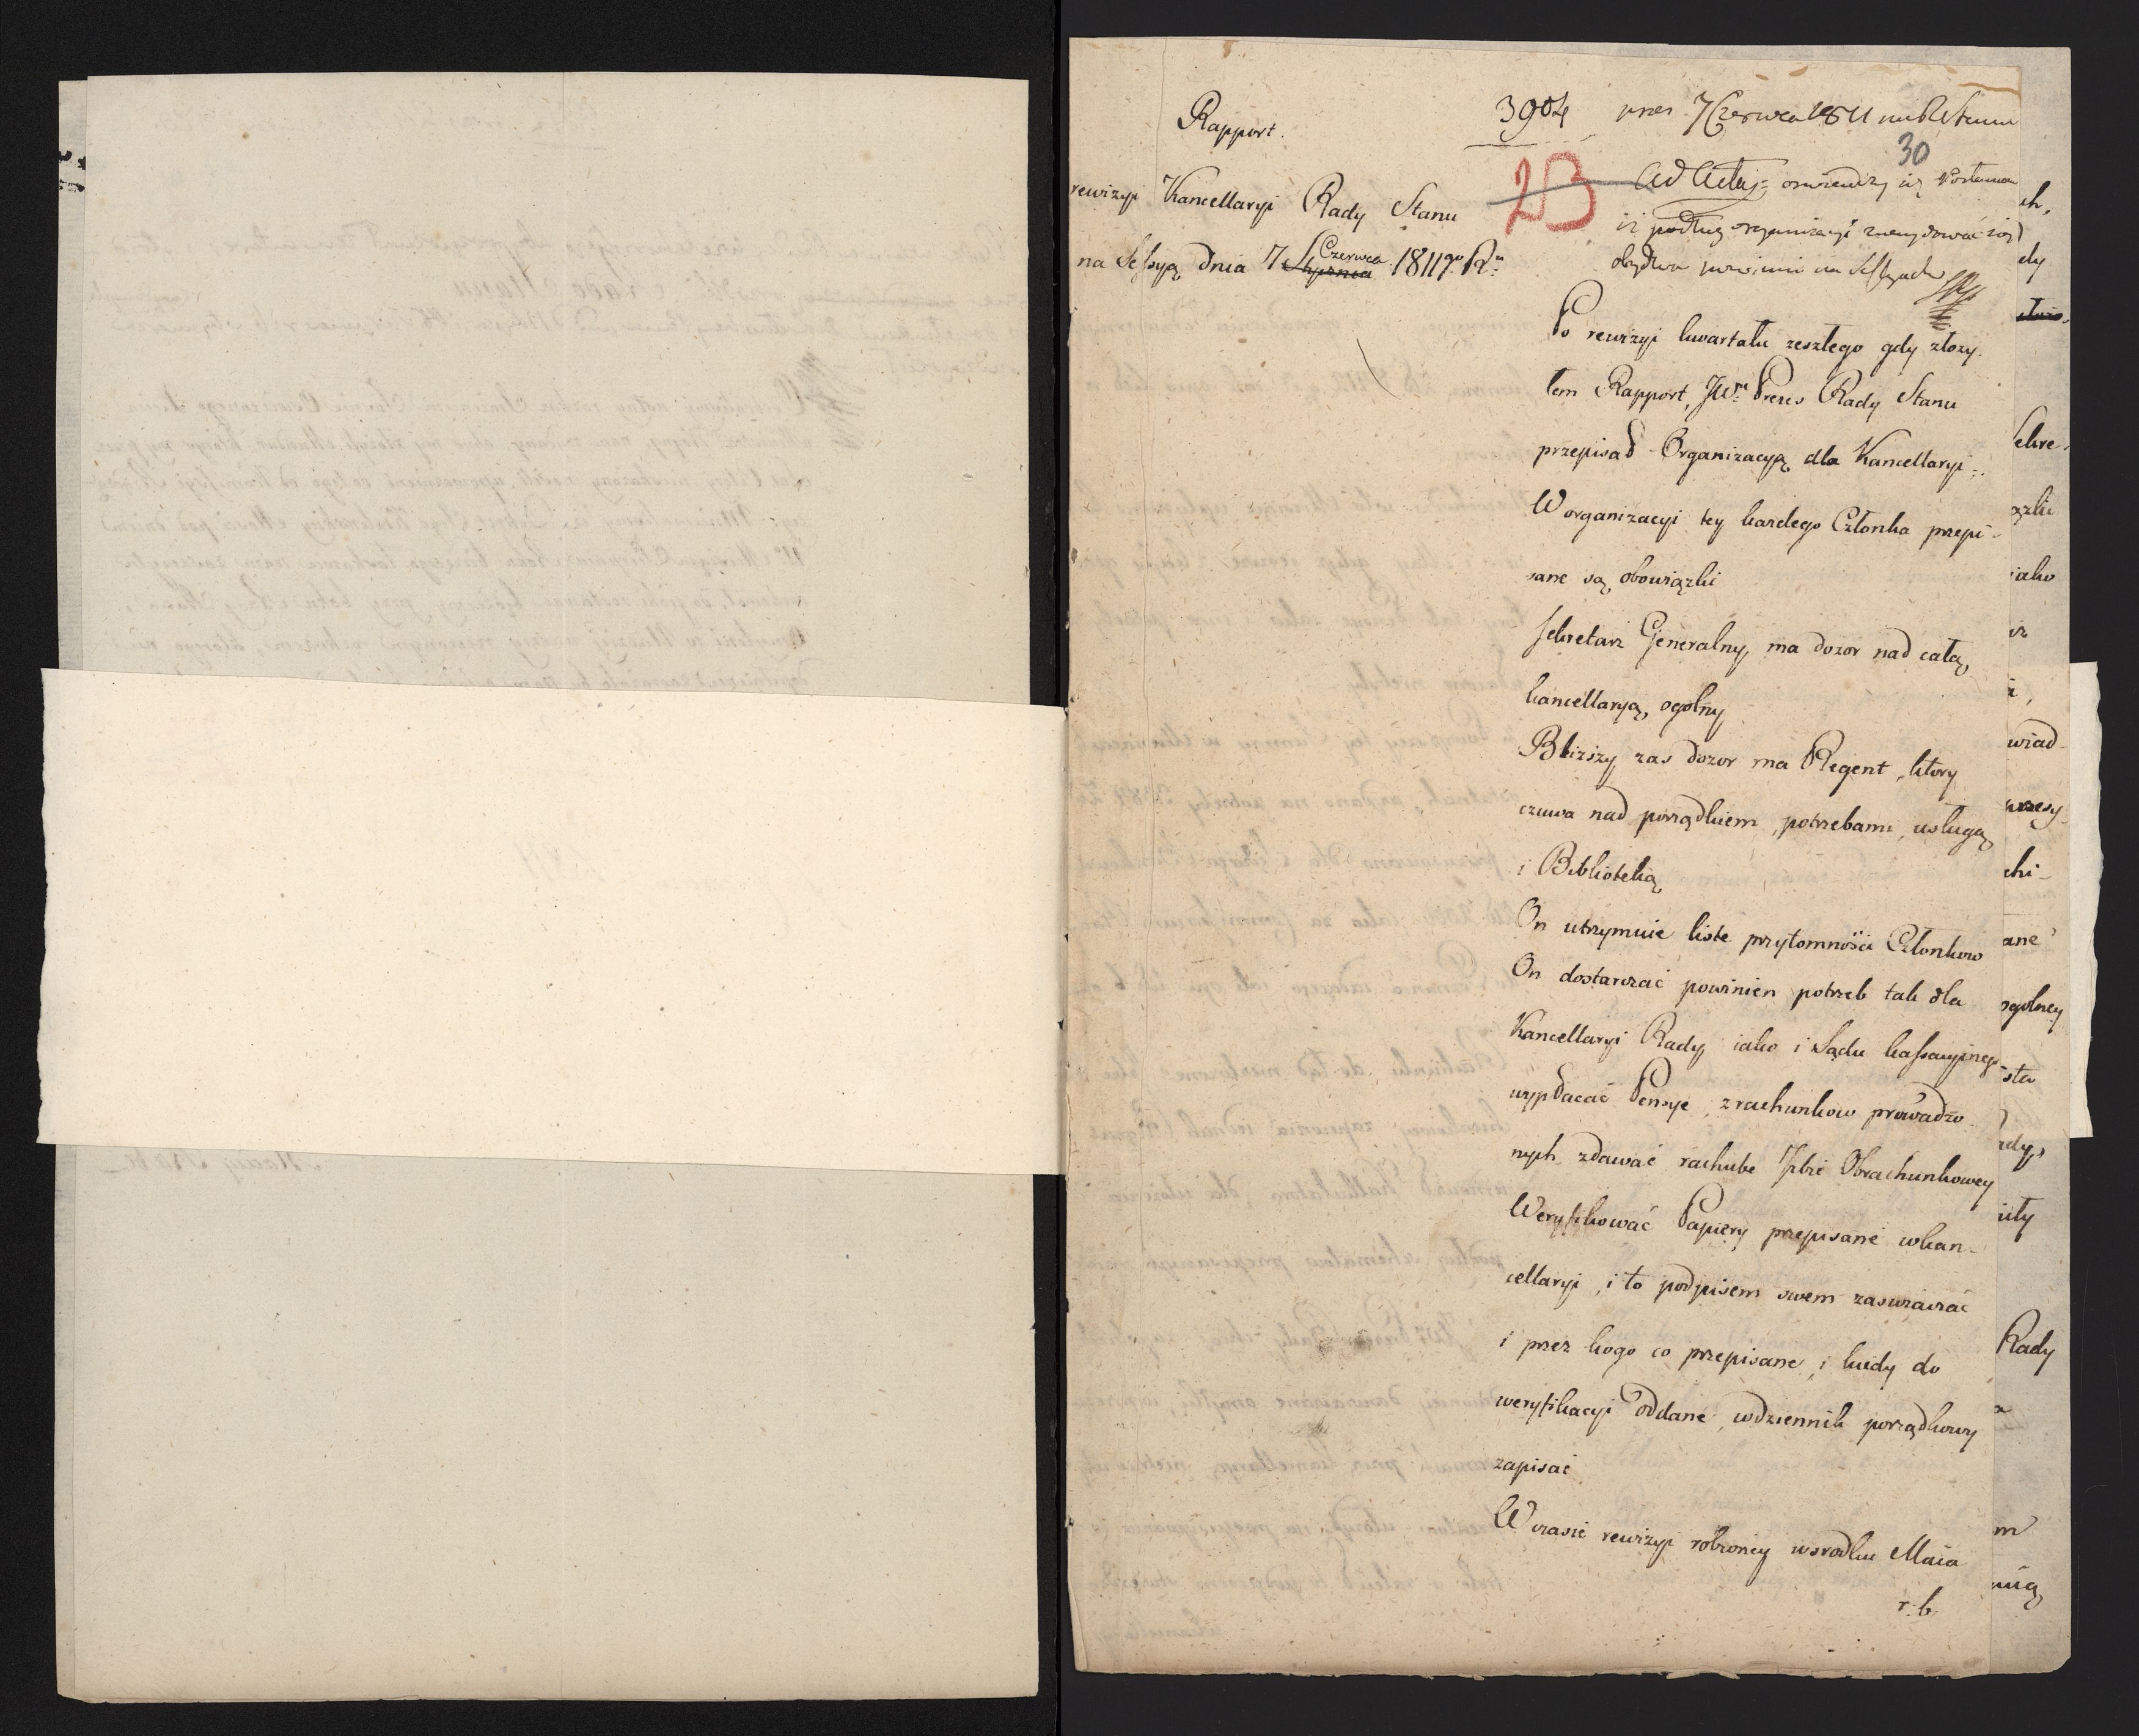 Rapport.
rewizyi Kancellaryi Rady Stanu
na Sessyą dnia 7 Lipnca Czerwca 1811go R:
390
7 Czerwca 1811
30
23
Ad Acta
iż podług organizacyi znaydować się
obydwa powinni na Sessyach
Po rewizyi kwartału zeszłego gdy złozy-
łem Rapport, JW. Prezes Rady Stanu
przepisał Organizacyą dla Kancellaryi.
W organizacyi tey kazdego Członka przepi-
sane są obowiązki
Sekretarz Generalny, ma dozor nad całą
kancellaryą, ogolny
Blizszy zas dozor ma Regent, ktory
czuwa nad porządkiem, potrzebami, usługą
i Biblioteką
On utrzymuie liste przytomności Członkow
On dostarczać powinien potrzeb tak dla
Kancellaryi Rady iako i Sądu kassacyinego
wypłacać Pensye, z rachunkow prowadzo-
nych zdawać rachube Izbie Obrachunkowey
Weryfikować Papiery przepisane w kan-
cellaryi, i to podpisem swem zaswiadczać
i przez kogo co przepisane, i kiedy do
weryfikacyi oddane, w dziennik porządkowy
zapisać
W czasie rewizyi robioney w srodku Maia
r. b.
ch,
dy
Sekre-
ązki
iako
wiad-
chi-
ane
ogolney
sta
ady,
ity
Rady
m
nią